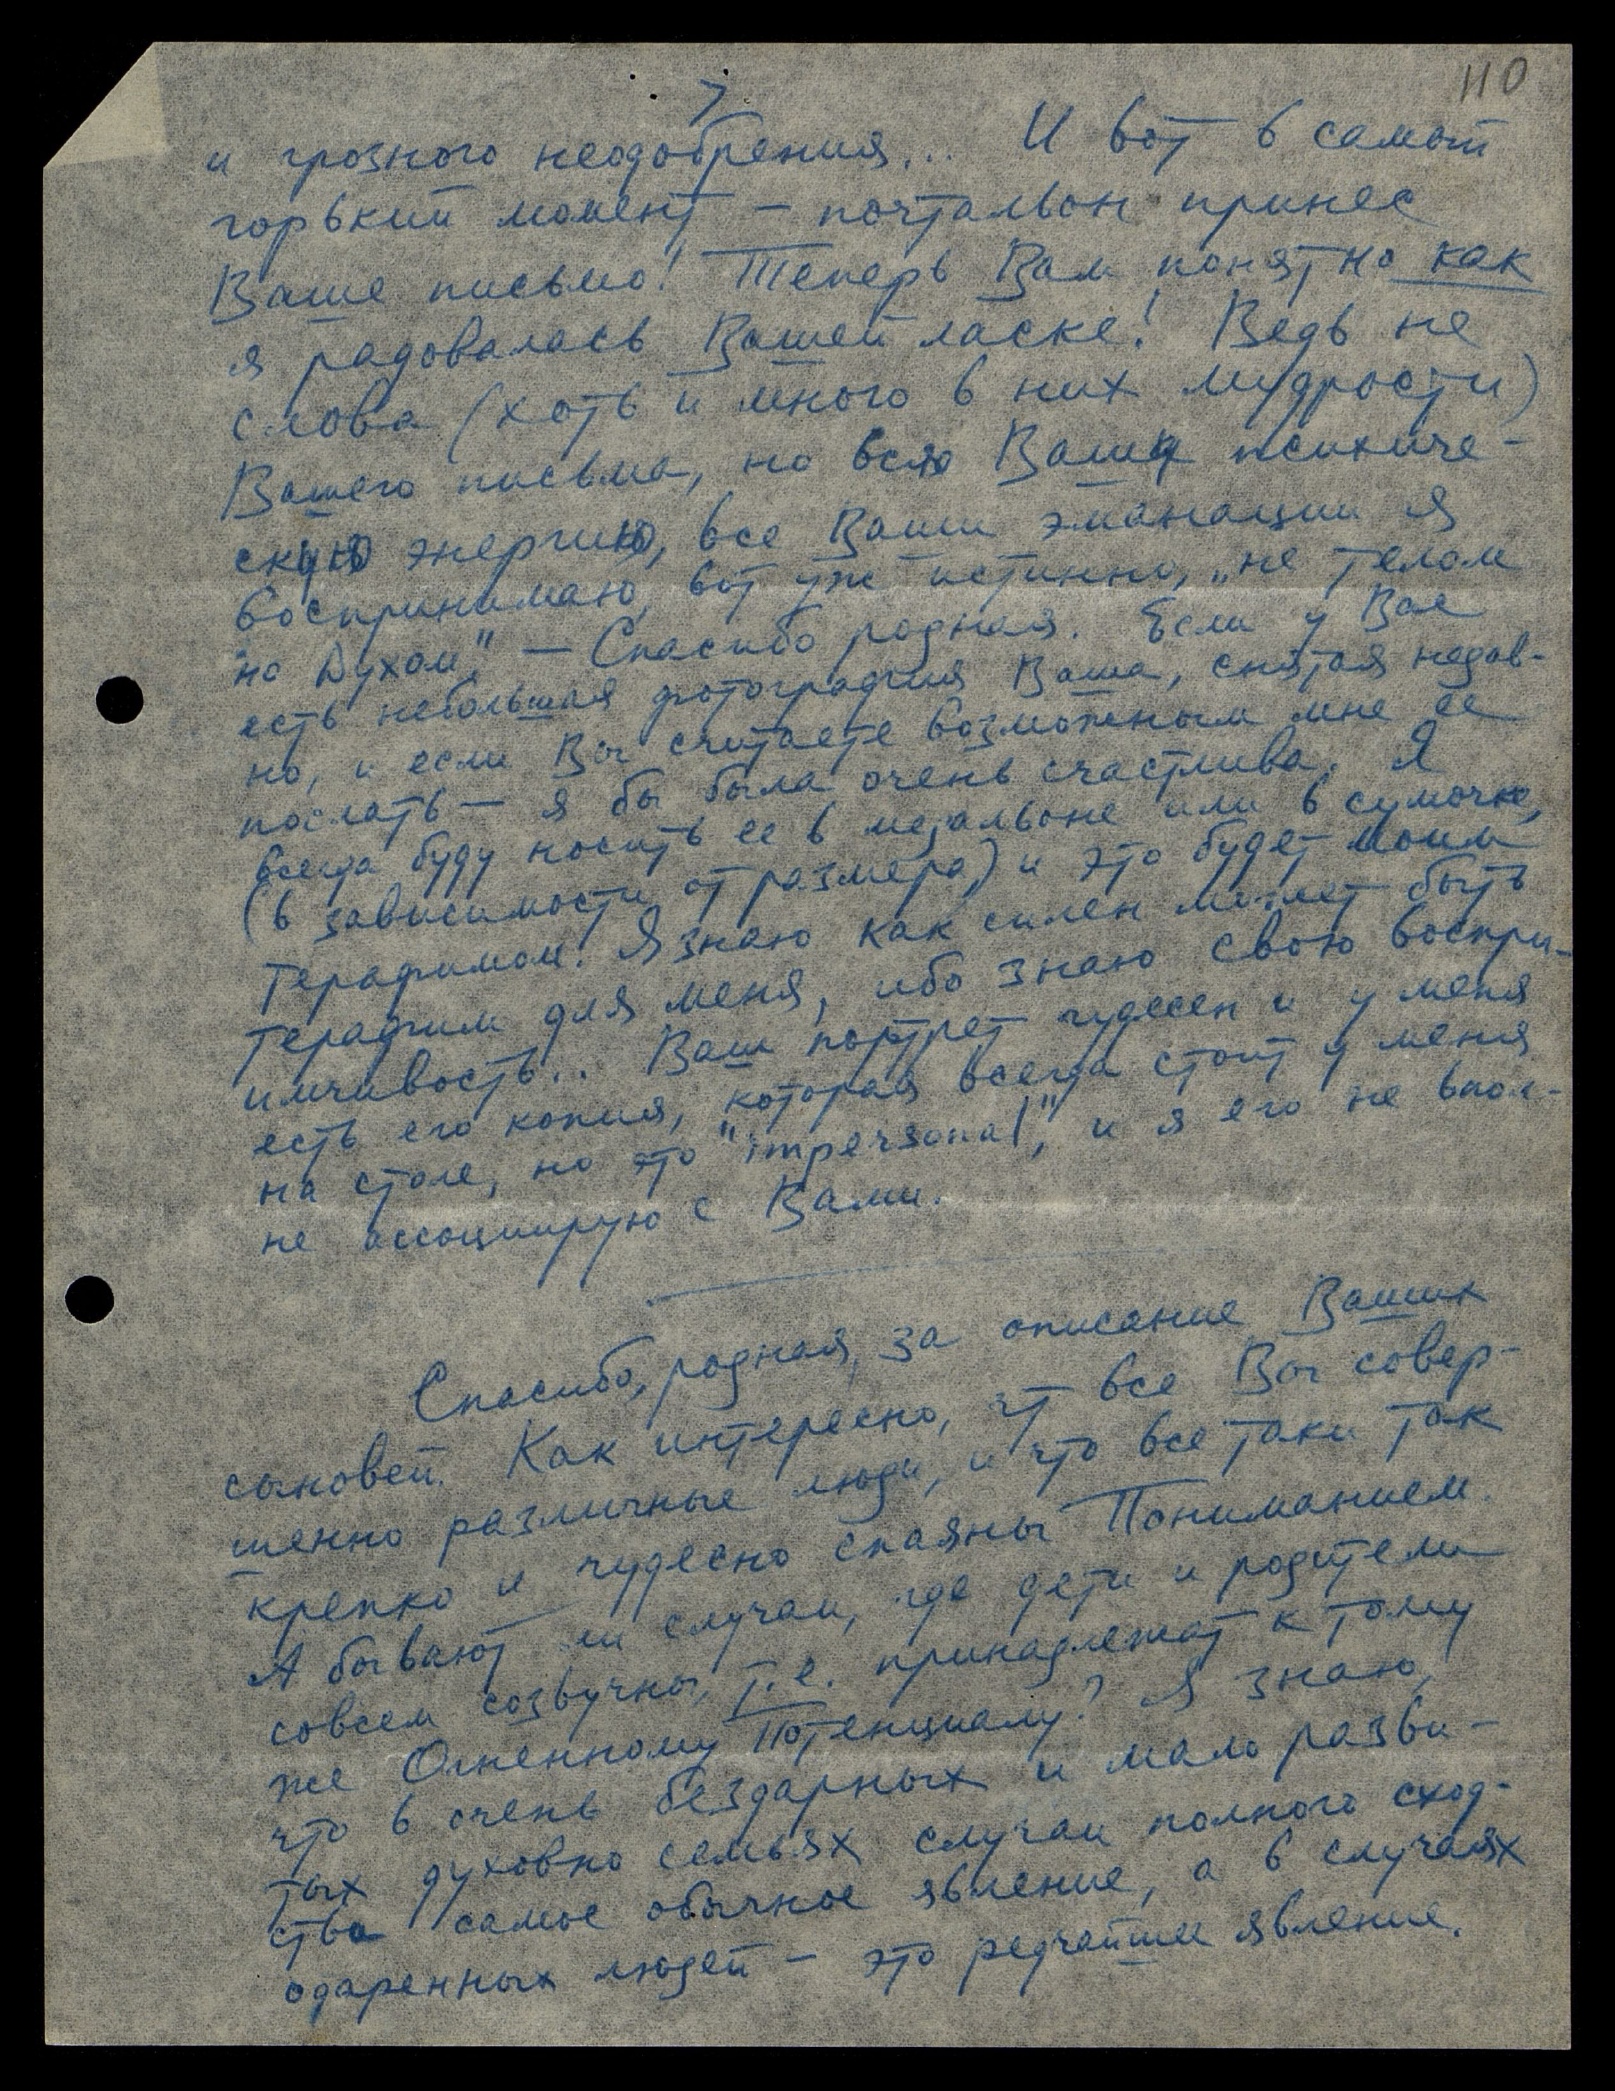 110
7
и грозного неодобрения... И вот в самый
горький момент — почтальон принес
Ваше письмо! Теперь Вам понятно как
я радовалась Вашей ласке! Ведь не
слова (хоть и много в них мудрости)
Вашего письма, но всю Вашу психиче-
скую энергию, все Ваши эманации я
воспринимаю, вот уж истинно, „не телом
но Духом". — Спасибо родная. Если у Вас
есть небольшая фотография Ваша, снятая недав-
но, и если Вы считаете возможным мне ее
послать — я бы была очень счастлива. Я
всегда буду носить ее в медальоне или в сумочке,
(в зависимости от размера) и это будет моим
терафимом! Я знаю как силен может быть
терафим для меня, ибо знаю свою воспри-
имчивость... Ваш портрет чудесен и у меня
есть его копия, которая всегда стоит у меня
на столе, но это "impersonal", и я его не впол-
не ассоциирую с Вами.
Спасибо, родная, за описание Ваших
сыновей. Как интересно, чт все Вы совер-
шенно различные люди, и что все таки так
крепко и чудесно спаяны Пониманием.
А бывают ли случаи, где дети и родители
совсем созвучны, т.е. принадлежат к тому
же Огненному Потенциалу? Я знаю,
что в очень бездарных и мало разви-
тых духовно семьях случаи полного сход-
ства самое обычное явление, а в случаях
одаренных людей — это редчайшее явление.